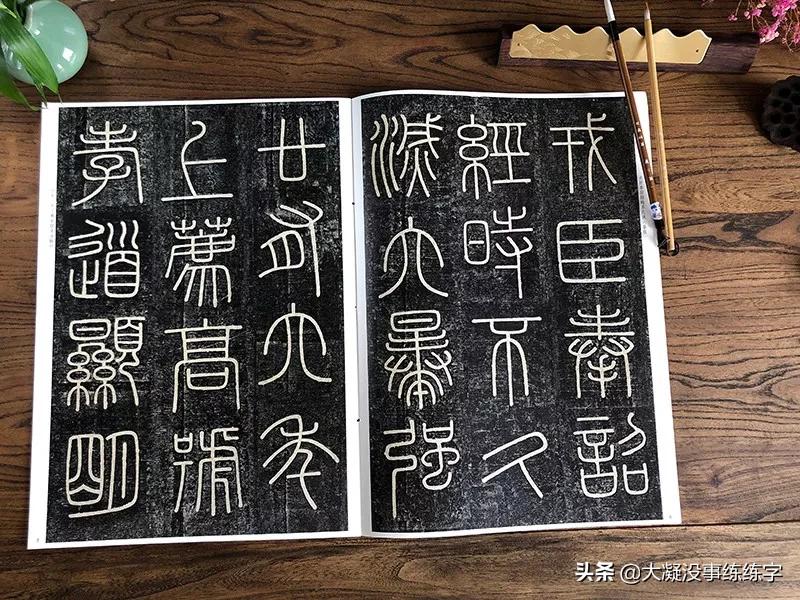 戎臣奉詔
經時不久
滅六暴強
廿有六年
上薦高號
孝道顯明
头条 @大凝没事练练字